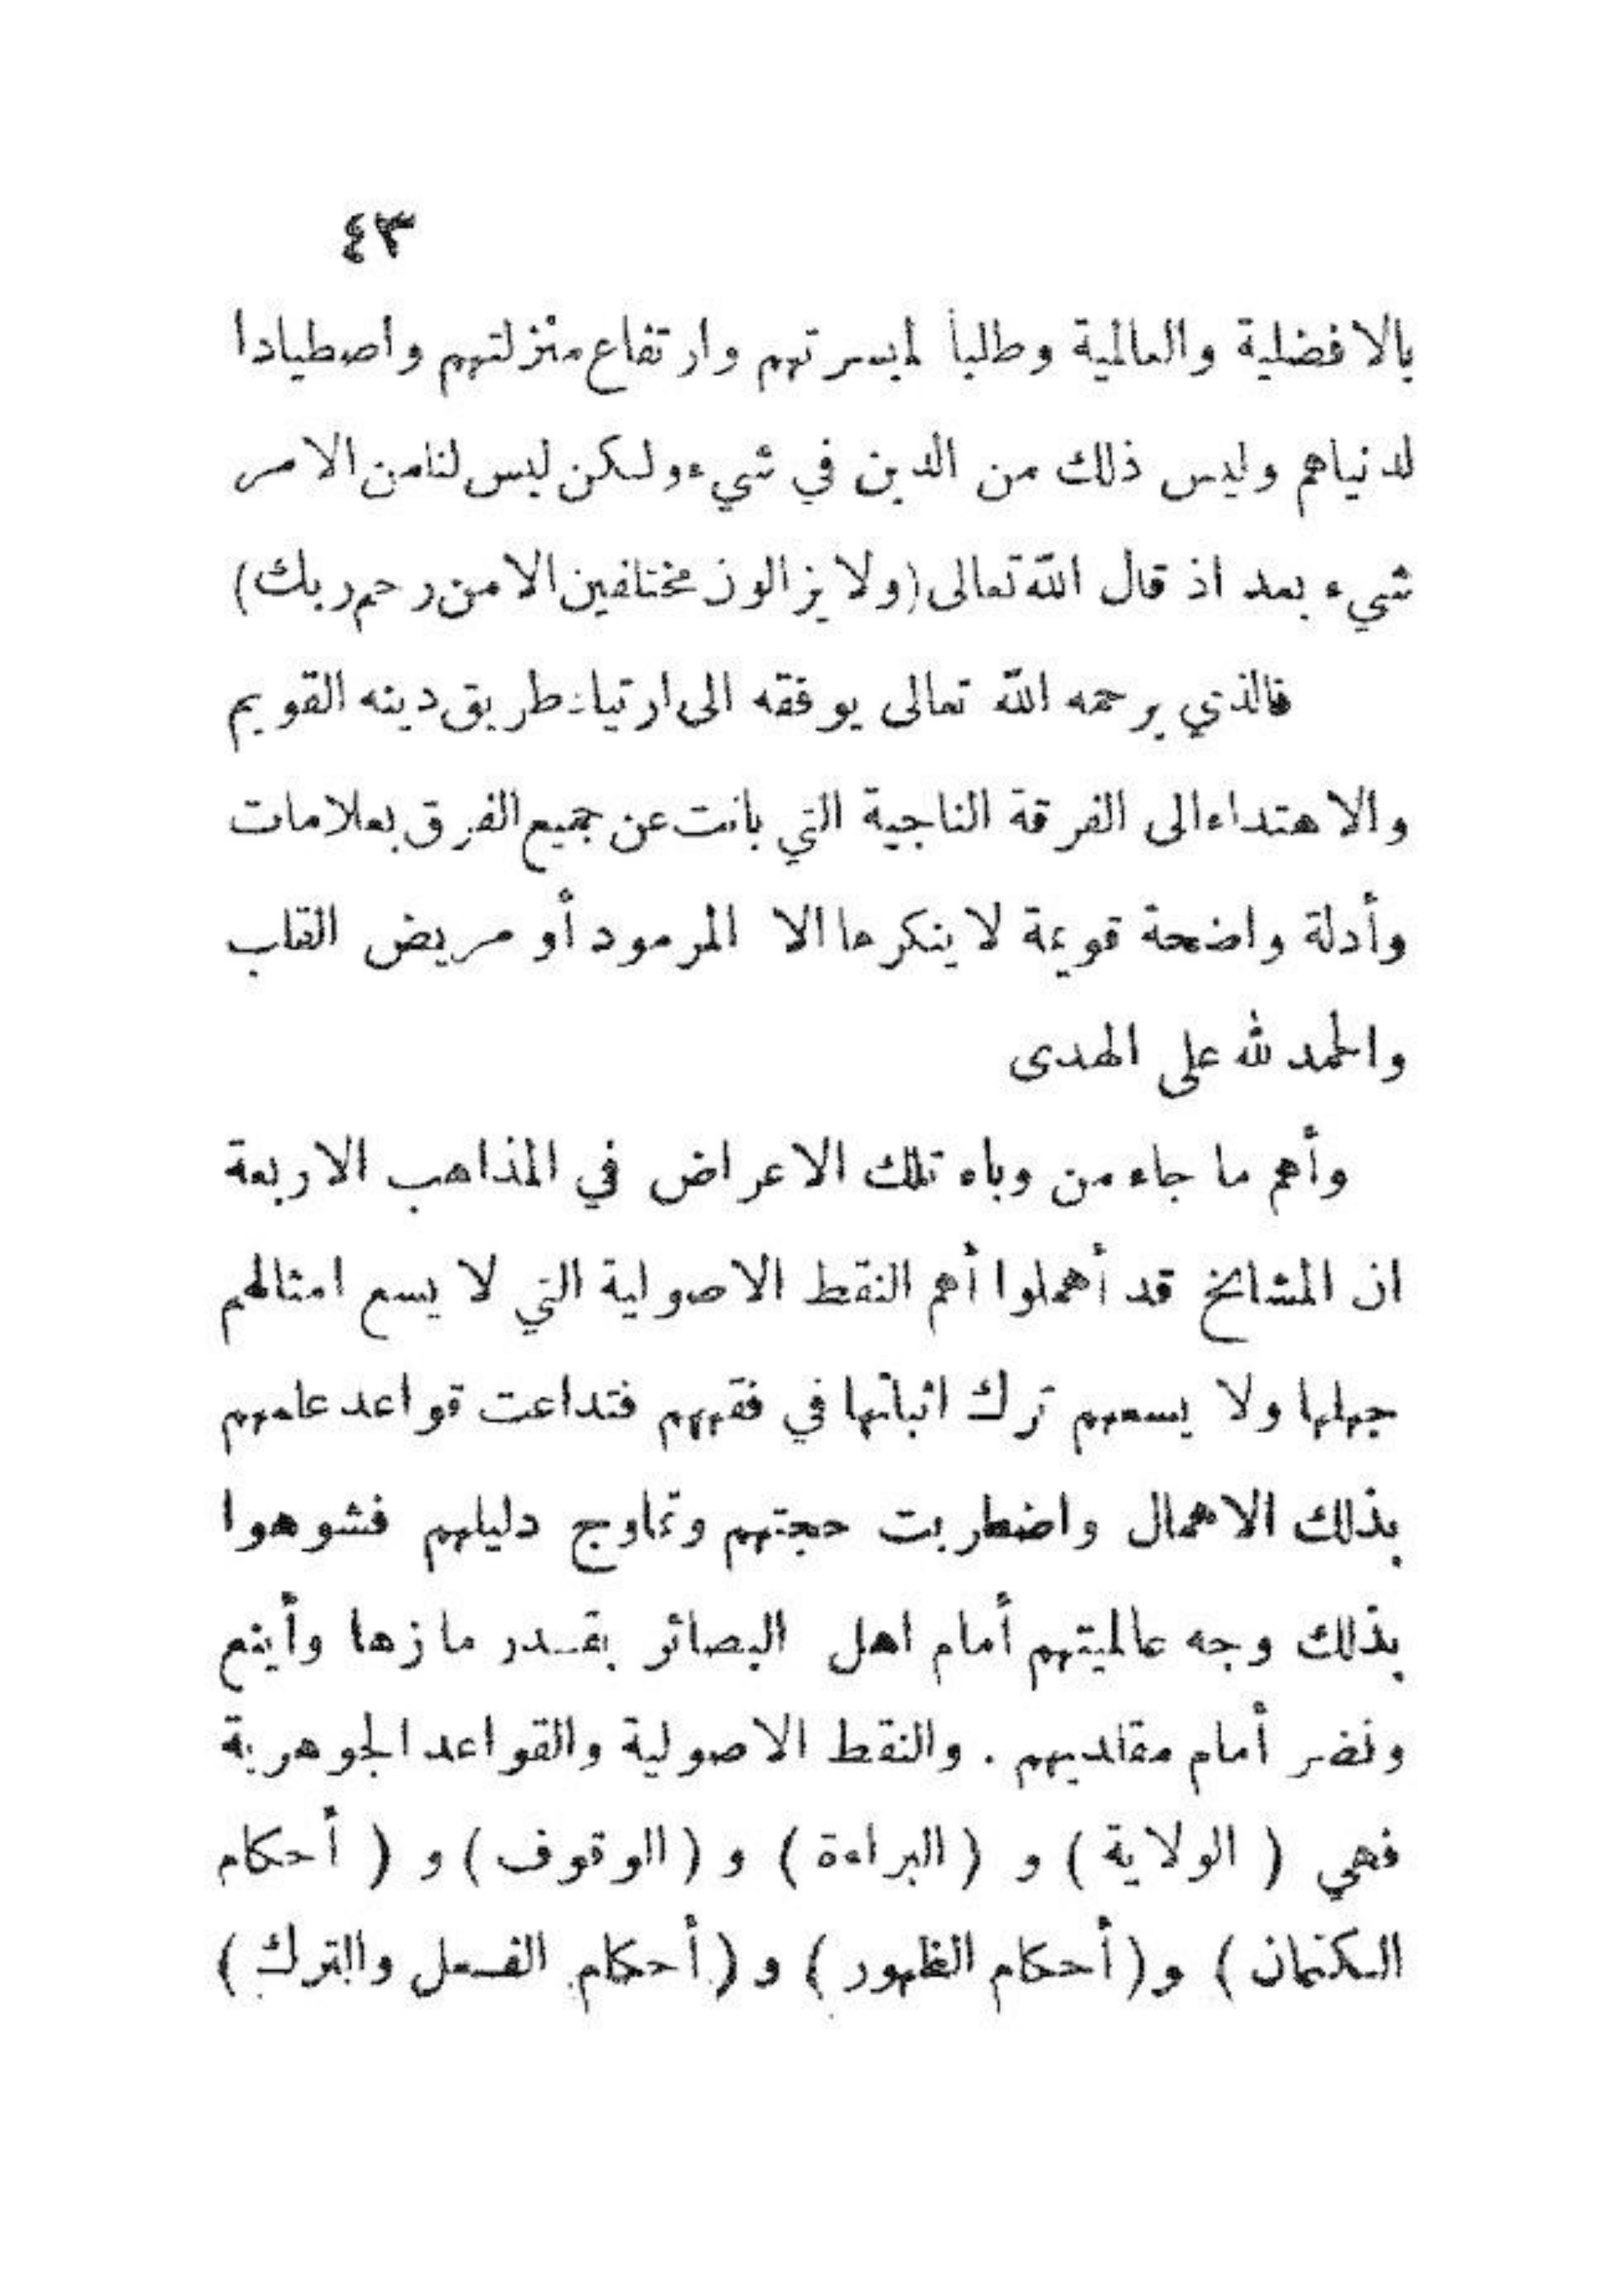 ٤٣
بالافضلية والعالمية وطلباً لميسرتهم وارتفاع منزلتهم واصطيادا
لدنياهم وليس ذلك من الدين في شيء ولكن ليس لنا من الامر
شيء بعد اذ قال الله تعالى (ولا يزالون مختلفين الا من رحم ربك)
فالذي يرحمه الله تعالى يوفقه الى ارتياد طريق دينه القويم
والاهتداء الى الفرقة الناجية التي بانت عن جميع الفرق بعلامات
وأدلة واضحة قويمة لا ينكرها الا المرمود أو مريض القلب
والحمد لله على الهدى
وأهم ما جاء من وباء تلك الاعراض في المذاهب الاربعة
ان المشايخ قد أهملوا أهم النقط الاصولية التي لا يسع امثالهم
جهلها ولا يسعهم ترك اثباتها في فقههم فتداعت قواعد علمهم
بذلك الاهمال واضطربت حجتهم وتماوج دليلهم فشوهوا
بذلك وجه عالميتهم أمام اهل البصائر بقدر ما زها وأينع
ونضر أمام مقلديهم . والنقط الاصولية والقواعد الجوهرية
فهي ( الولاية ) و ( البراءة ) و ( الوقوف ) و ( أحكام
الكتمان ) و ( أحكام الظهور ) و ( أحكام الفعل والترك )